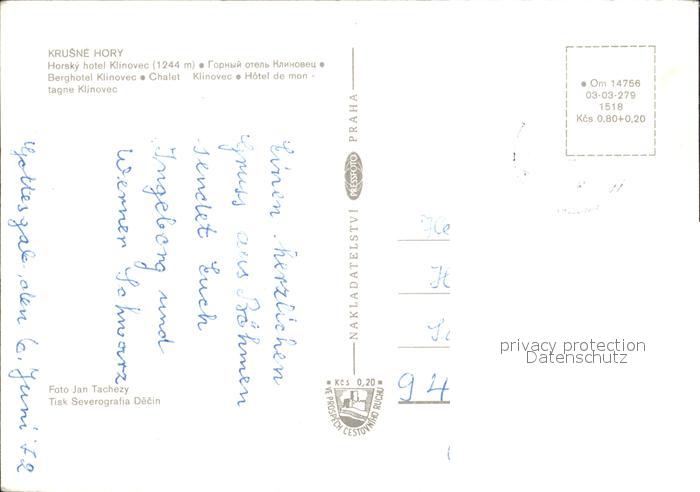 KRUŠNÉ HORY
Horský hotel Klínovec (1244 m) ● Горный отель Клиновец ●
Berghotel Klínovec ● Chalet Klínovec ● Hôtel de mon -
tagne Klínovec
● Om 14756
03-03-279
1518
Kčs 0,80+0,20
Gottesgab, den 6. Juni 72
Einen herzlichen
Gruss aus Böhmen
sendet Euch
Ingeborg und
Werner Schwarz
NAKLADATELSTVÍ PRESSFOTO PRAHA
He
H
94
privacy protection
Datenschutz
● Kčs 0,20 ●
VE PROSPĚCH CESTOVNÍHO RUCHU
Foto Jan Tachezy
Tisk Severografia Děčín